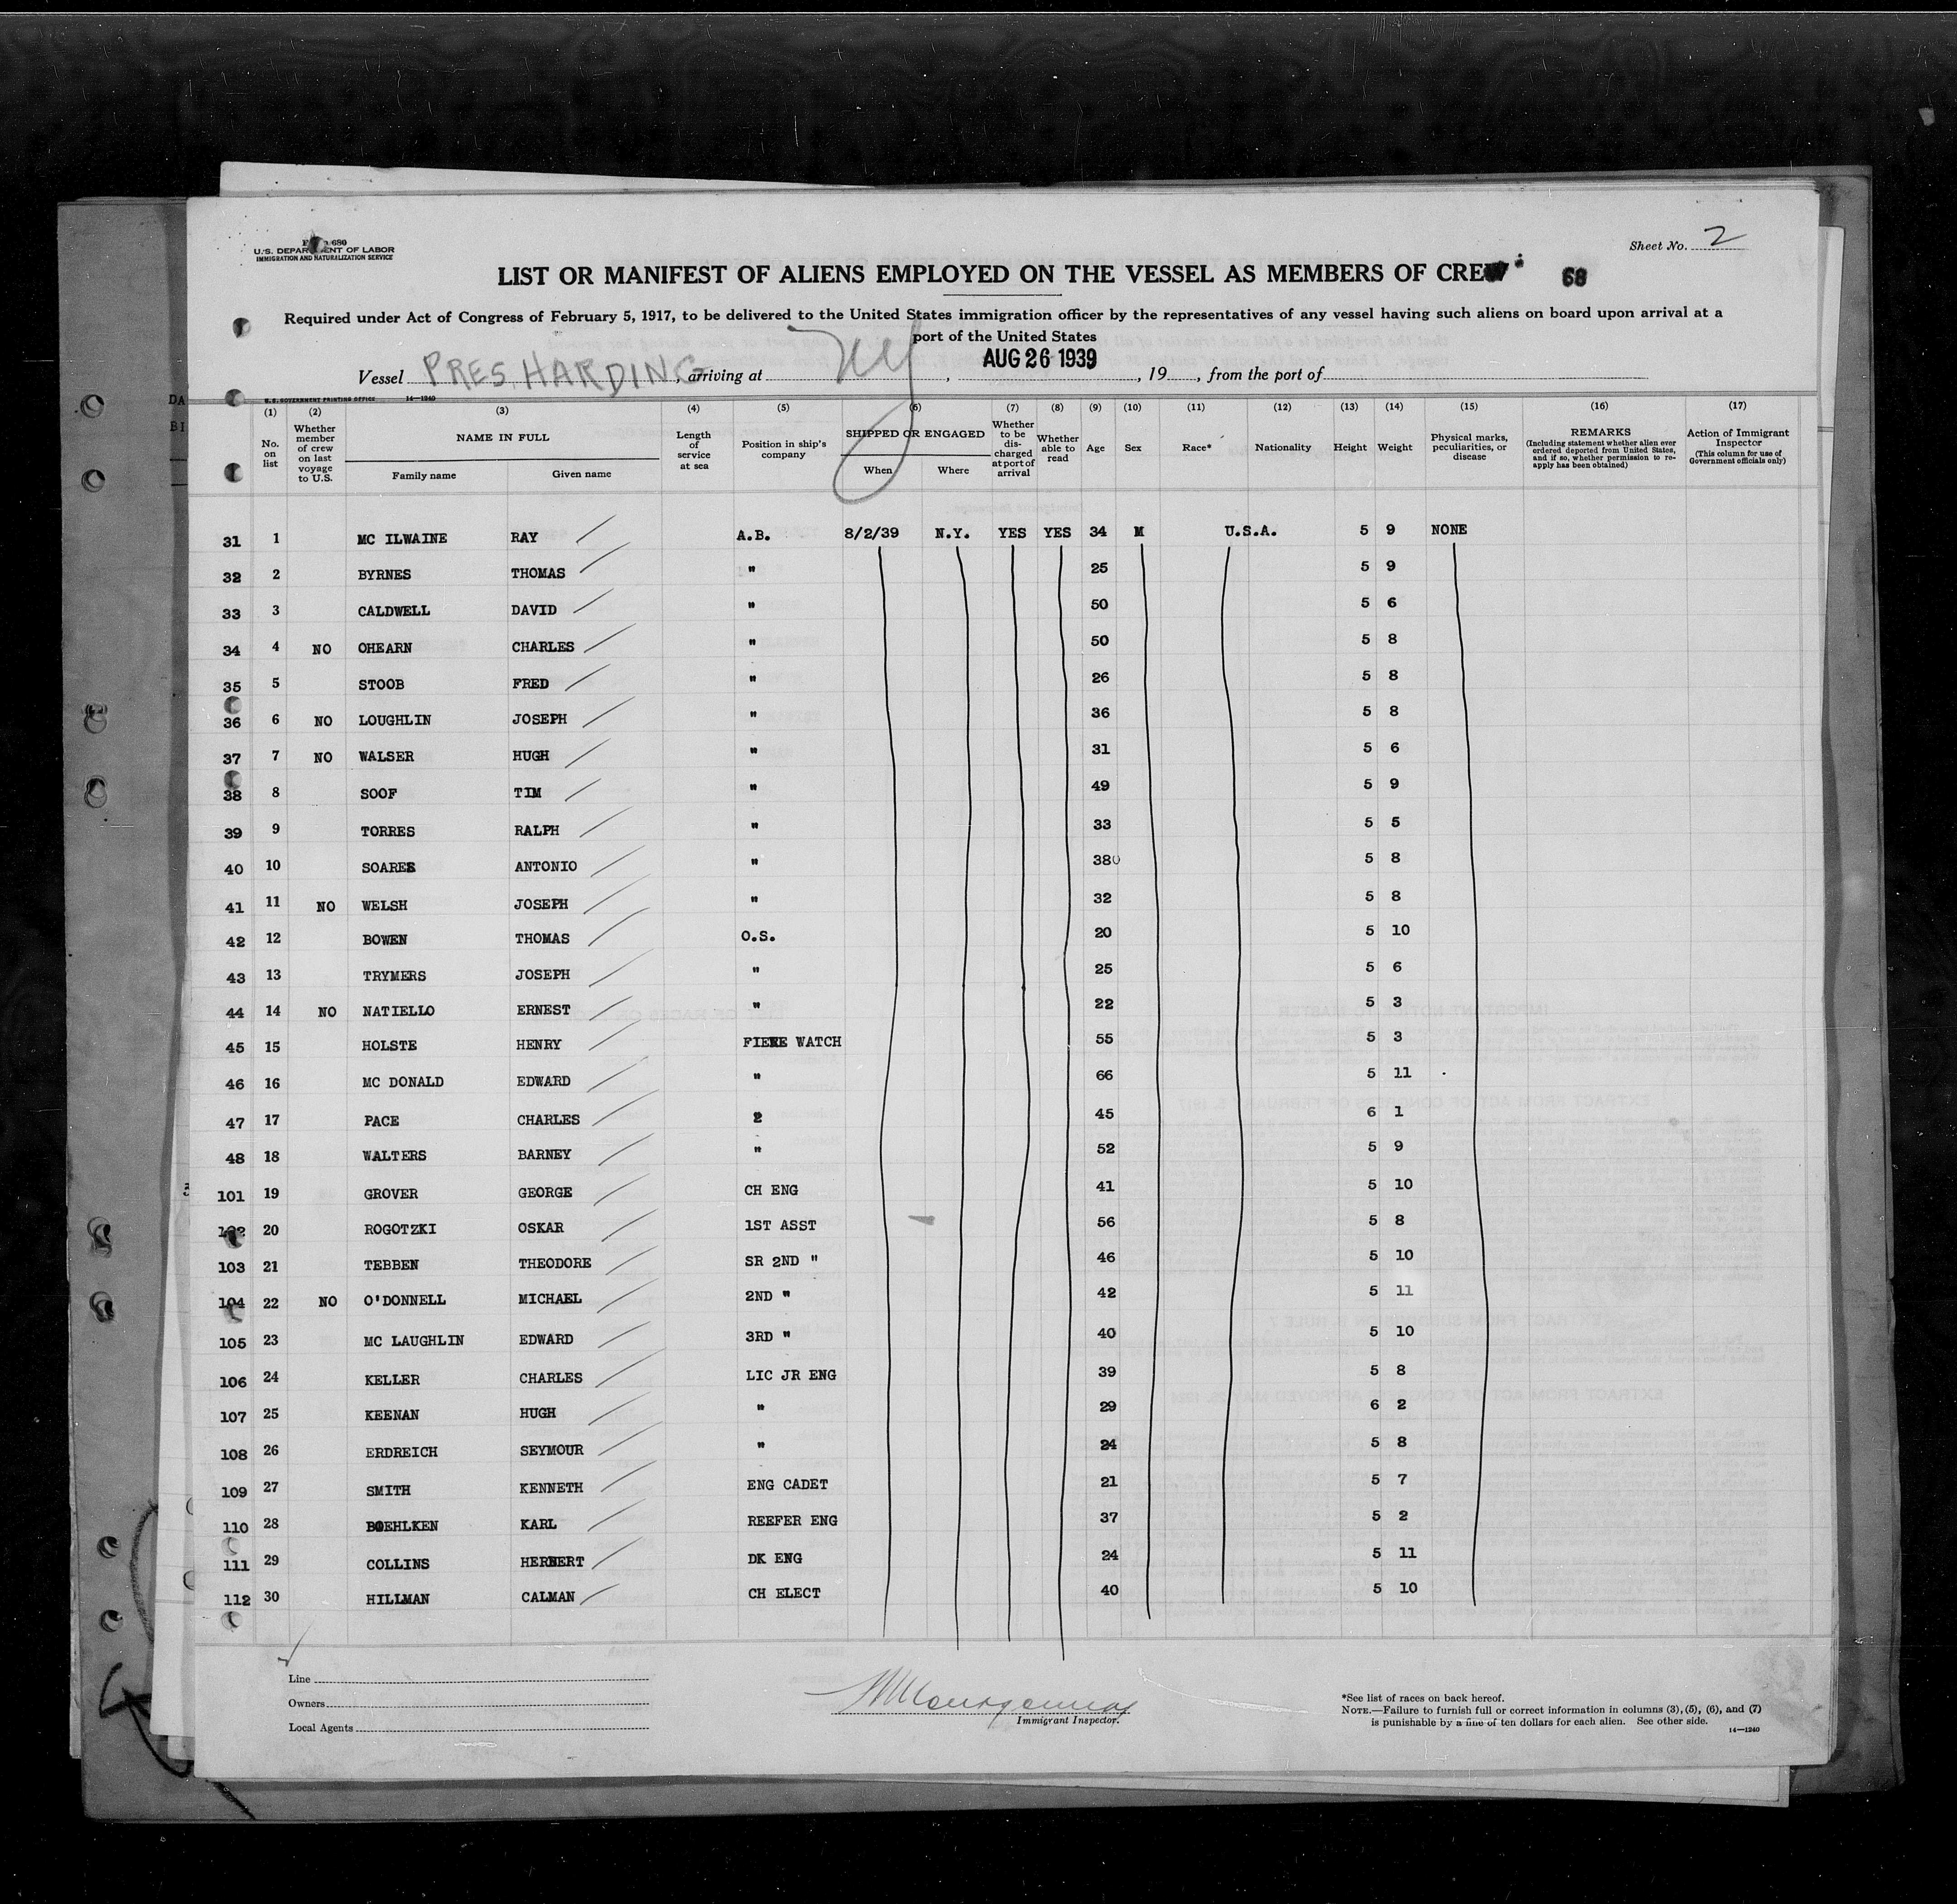 Sheet No. 2
680
U.S. DEPARTMENT OF LABOR
IMMIGRATION AND NATURALIZATION SERVICE
LIST OR MANIFEST OF ALIENS EMPLOYED ON THE VESSEL AS MEMBERS OF CREW 68
Required under Act of Congress of February 5, 1917, to be delivered to the United States immigration officer by the representatives of any vessel having such aliens on board upon arrival at a
port of the United States
Vessel PRES. HARDING, arriving at NY, AUG 26 1939, 19, from the port of
U.S. GOVERNMENT PRINTING OFFICE 14—1240
(1) (2) (3) (4) (5) (6) (7) (8) (9) (10) (11) (12) (13) (14) (15) (16) (17)
No. on list
Whether member of crew on last voyage to U.S.
NAME IN FULL
Family name Given name
Length of service at sea
Position in ship's company
SHIPPED OR ENGAGED
When Where
Whether to be discharged at port of arrival
Whether able to read
Age Sex Race* Nationality Height Weight
Physical marks, peculiarities, or disease
REMARKS
(Including statement whether alien ever ordered deported from United States, and if so, whether permission to re-apply has been obtained)
Action of Immigrant Inspector
(This column for use of Government officials only)
31 1 MC ILWAINE RAY A.B. 8/2/39 N.Y. YES YES 34 M U.S.A. 5 9 NONE
32 2 BYRNES THOMAS " 25 5 9
33 3 CALDWELL DAVID " 50 5 6
34 4 NO OHEARN CHARLES " 50 5 8
35 5 STOOB FRED " 26 5 8
36 6 NO LOUGHLIN JOSEPH " 36 5 8
37 7 NO WALSER HUGH " 31 5 6
38 8 SOOF TIM " 49 5 9
39 9 TORRES RALPH " 33 5 5
40 10 SOARES ANTONIO " 38 5 8
41 11 NO WELSH JOSEPH " 32 5 8
42 12 BOWEN THOMAS O.S. 20 5 10
43 13 TRYMERS JOSEPH " 25 5 6
44 14 NO NATIELLO ERNEST " 22 5 3
45 15 HOLSTE HENRY WATCH 55 5 3
46 16 MC DONALD EDWARD " 66 5 11
47 17 PACE CHARLES 2 45 6 1
48 18 WALTERS BARNEY " 52 5 9
101 19 GROVER GEORGE CH ENG 41 5 10
102 20 ROGOTZKI OSKAR 1ST ASST 56 5 8
103 21 TEBBEN THEODORE SR 2ND " 46 5 10
104 22 NO O'DONNELL MICHAEL 2ND " 42 5 11
105 23 MC LAUGHLIN EDWARD 3RD " 40 5 10
106 24 KELLER CHARLES LIC JR ENG 39 5 8
107 25 KEENAN HUGH " 29 6 2
108 26 ERDREICH SEYMOUR " 24 5 8
109 27 SMITH KENNETH ENG CADET 21 5 7
110 28 BOEHLKEN KARL REEFER ENG 37 5 2
111 29 COLLINS HERBERT DK ENG 24 5 11
112 30 HILLMAN CALMAN CH ELECT 40 5 10
Line
Owners
Local Agents
Immigrant Inspector.
*See list of races on back hereof.
NOTE.—Failure to furnish full or correct information in columns (3), (5), (6), and (7)
is punishable by a fine of ten dollars for each alien. See other side.
14—1240
DA
BI